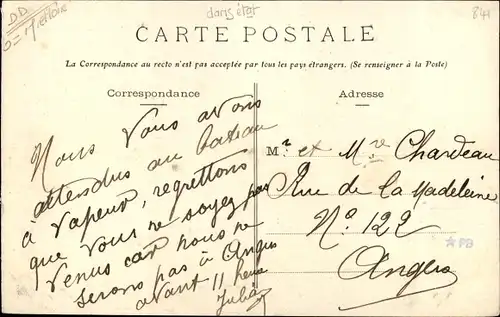 DD
dans état
841
CARTE POSTALE
La Correspondance au recto n'est pas acceptée par tous les pays étrangers. (Se renseigner à la Poste)
Correspondance
Nous Vous avons
attendus au bateau
à vapeur, regrettons
que Vous ne soyez pas
Venus car nous ne
serons pas à Angers
avant 11 heures
Adresse
Mr et Mme Chardeau
Rue de la Madeleine
No 122
Angers